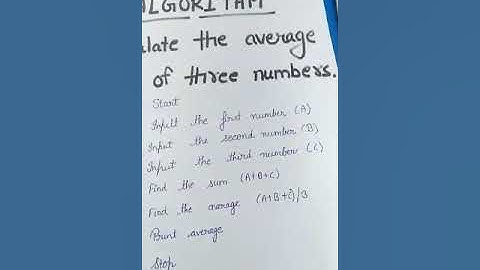 ALGORITHM
late the average
of three numbers.
Start
Input the first number (A)
Input the second number (B)
Input the third number (C)
Find the sum (A+B+C)
Find the average (A+B+C)/3
Print average
Stop